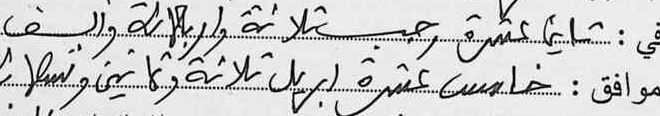 في : عشرة رجب ثلاثة واربعمائة والف
موافق : خامس عشرة ابريل ثلاثة وثمانين